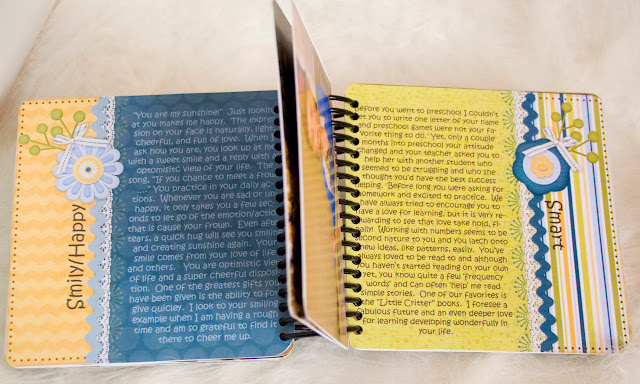 "You are my sunshine!" Just looking
at you makes me happy. The expres-
sion on your face is naturally, light,
cheerful, and full of love. When I
ask how you are, you look up at me
with a sweet smile and a reply with
optomistic view of your life. The
song, "If you chance to meet a frown
You practice in your daily
tions. Whenever you are sad or un-
happy, it only takes you a few sec-
onds to let go of the emotion/action
that is cause your frown. Even
tears, a quick hug will see you smiling
and creating sunshine again. Your
smile comes from your love of life
and others. You are optimistic view
of life and a super cheerful disposi-
tion. One of the greatest gifts you
have been given is the ability to for-
give quicley. I look to your smiling
example when I am having a rough
time and am so grateful to find it
there to cheer me up.
Smily/Happy
Before you went to preschool I couldn't
get you to write one letter of your name
and preschool games were not your fa-
vorite thing to do. Yet, only a couple
months into preschool your attitude
changed and your teacher asked you to
help her with another student who
seemed to be struggling and who she
thought you'd have the best success
helping. Before long you were asking for
homework and excited to practice. We
have always tried to encourage you to
have a love for learning, but it is very re-
warding to see that love take hold, fi-
nally! Working with numbers seems to be
second nature to you and you latch onto
new ideas, like patterns, easily. You've
always loved to be read to and although
you haven't started reading on your own
yet, you know quite a few 'frequency
words' and can often 'help' me read
simple stories. One of our favorites is
the "Little Critter" books. I foresee a
fabulous future and an even deeper love
for learning developing wonderfully in
your life.
Smart